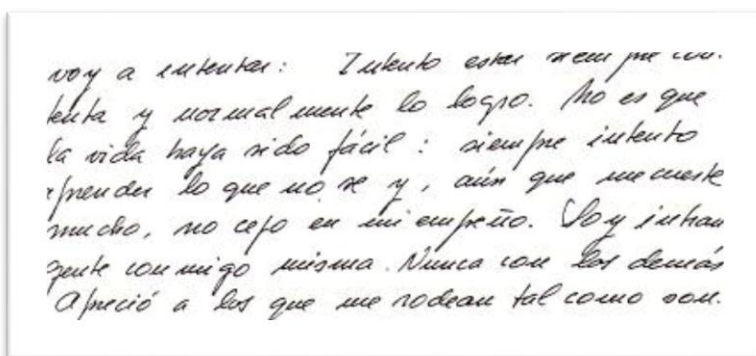 voy a intentar: Intento estar siempre con.
tenta y normalmente lo logro. No es que
la vida haya sido fácil: siempre intento
aprender lo que no se y, aún que me cueste
mucho, no cejo en mi empeño. Soy intran
gente conmigo misma. Nunca con los demás
Apreció a los que me rodean tal como son.